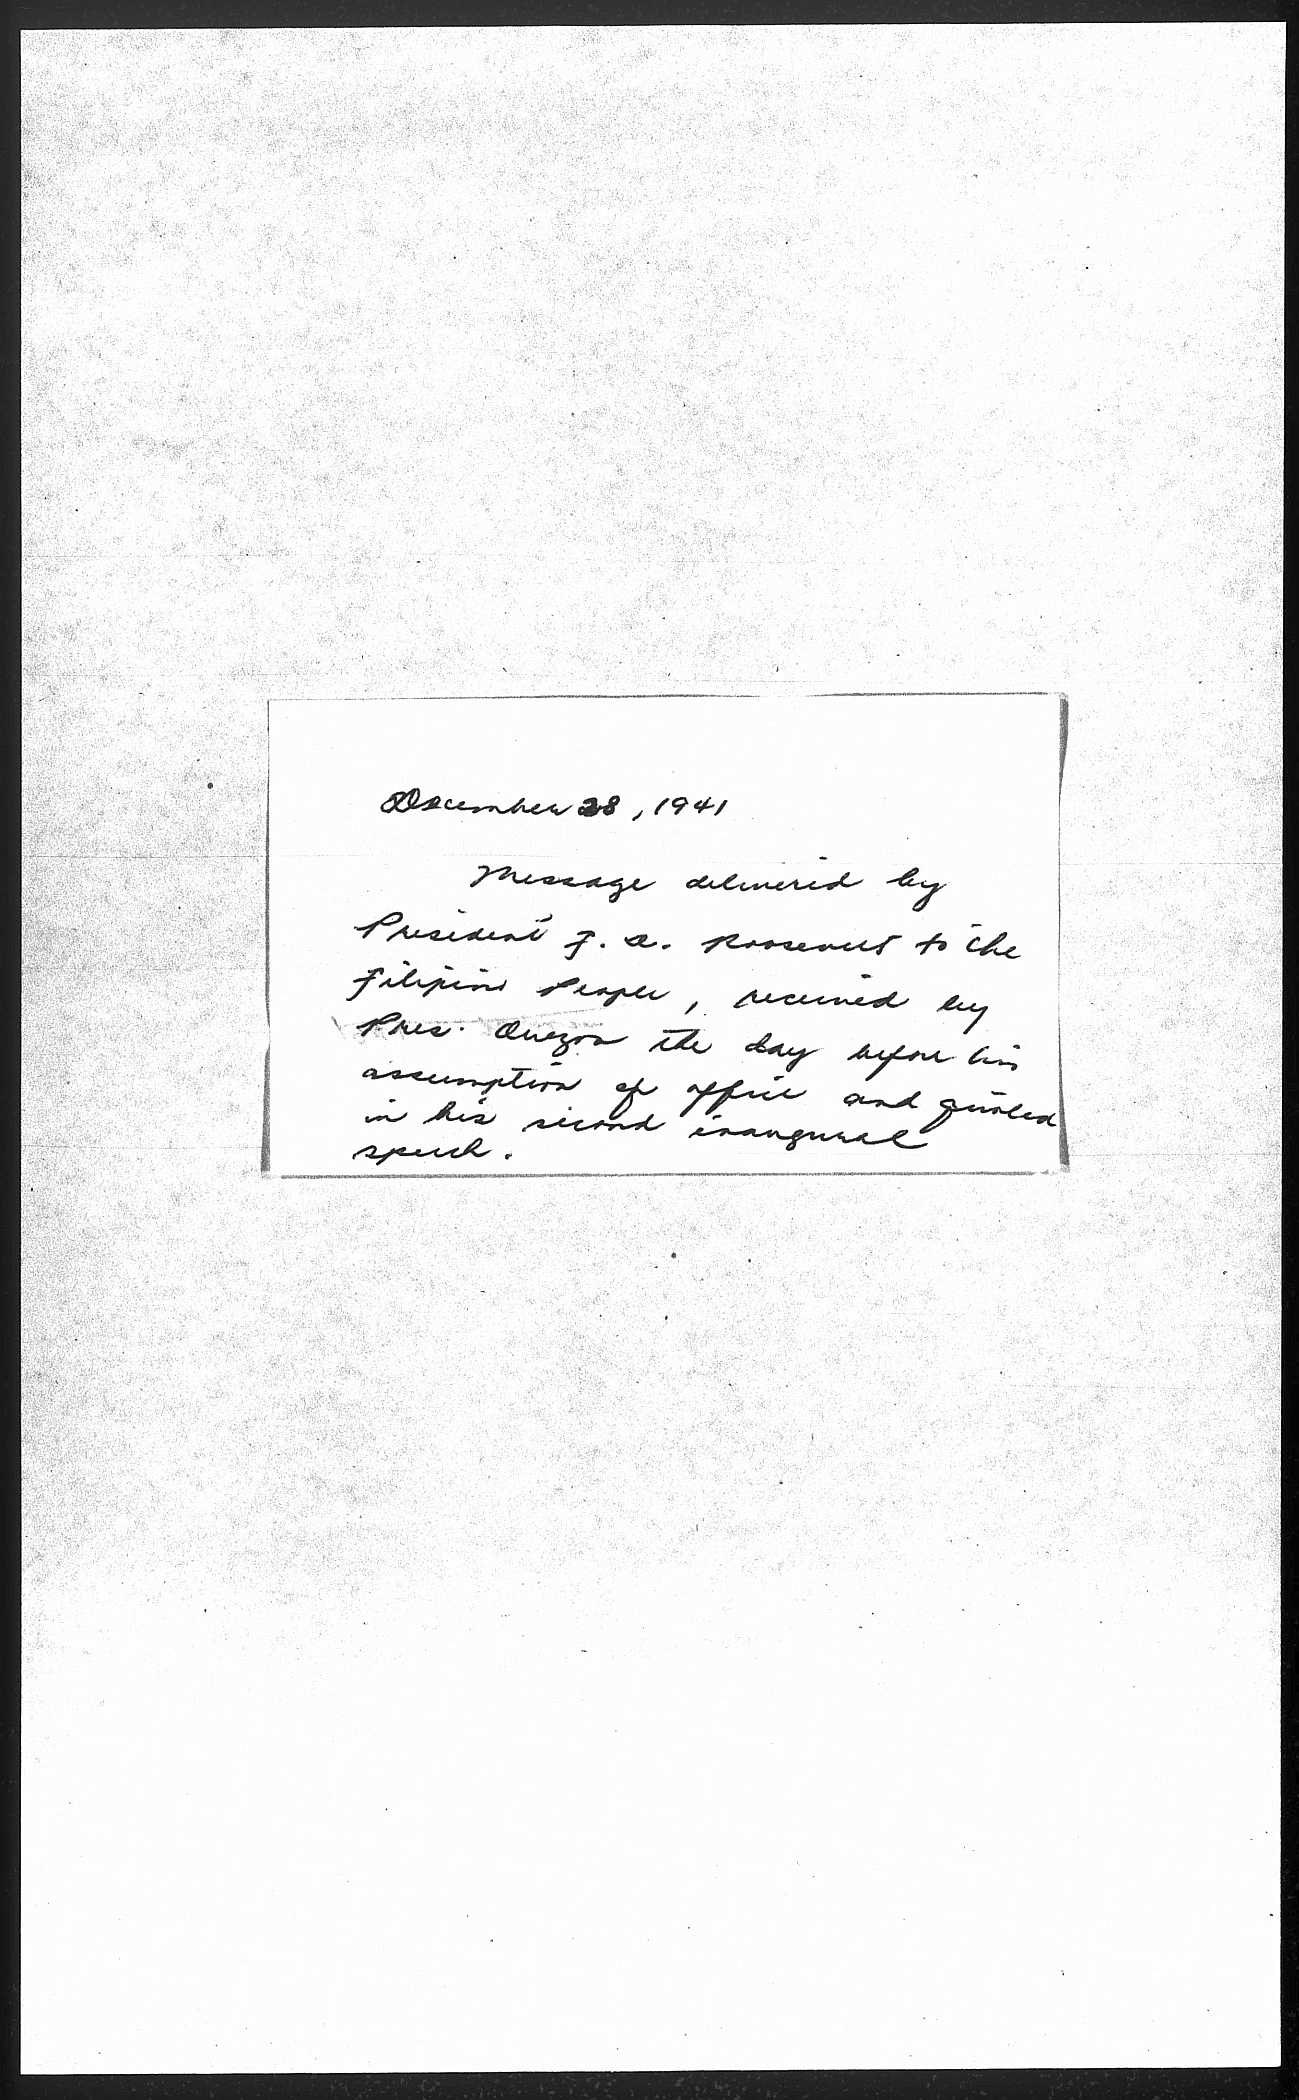 December 28, 1941
Message delivered by
President F. D. Roosevelt to the
Filipino People, received by
Pres. Quezon the day before his
assumption of office and quoted
in his second inaugural
speech.